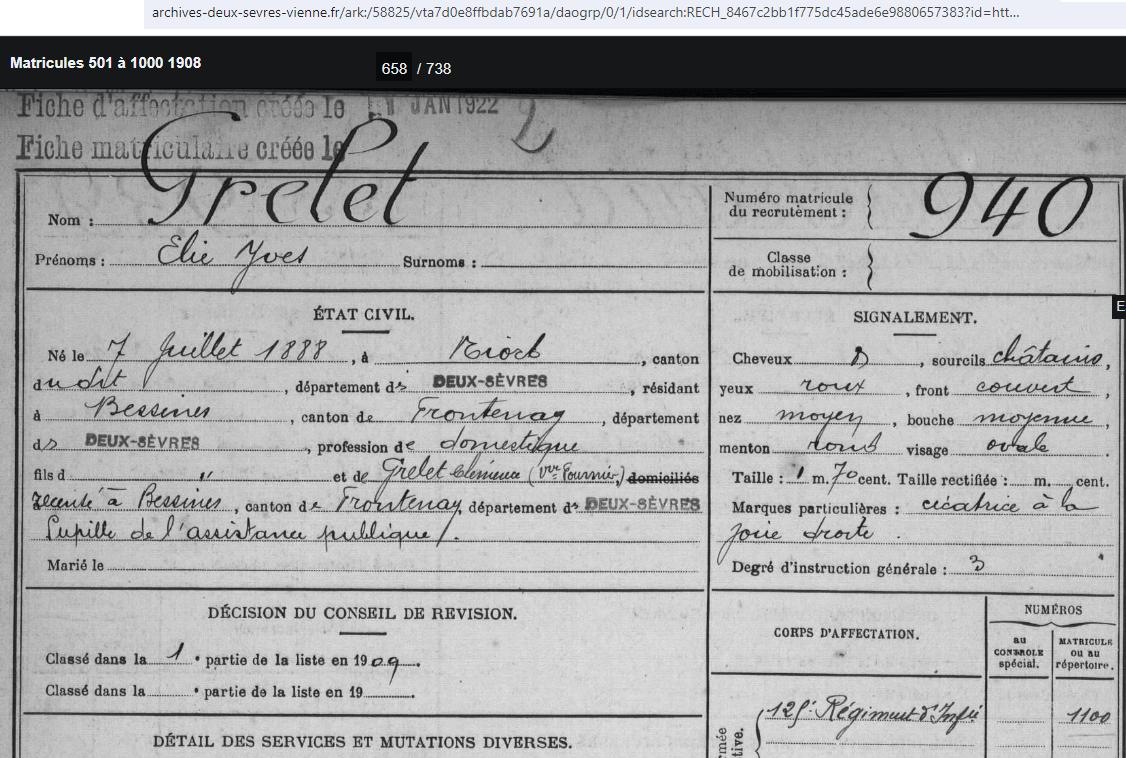 archives-deux-sevres-vienne.fr/ark:/58825/vta7d0e8ffbdab7691a/daogrp/0/1/idsearch:RECH_8467c2bb1f775dc45ade6e9880657383?id=htt...
Matricules 501 à 1000 1908
658 / 738
Fiche d'affectation créée le JAN 1922
2
Fiche matriculaire créée le
Nom : Grelet
Prénoms : Elie Yves Surnoms :
Numéro matricule
du recrutement : 940
Classe
de mobilisation :
ÉTAT CIVIL.
Né le 7 Juillet 1888, à Niort, canton
du dit, département ds DEUX-SÈVRES, résidant
à Bessines, canton de Frontenay, département
ds DEUX-SÈVRES, profession de domestique
fils d " et de Grelet Clémence (Vve Fournier) domiciliés
recensé à Bessines, canton de Frontenay, département ds DEUX-SÈVRES
Pupille de l'assistance publique /.
Marié le
SIGNALEMENT.
Cheveux, sourcils châtains,
yeux roux, front couvert,
nez moyen, bouche moyenne,
menton rond visage ovale.
Taille : 1 m. 70 cent. Taille rectifiée : m. cent.
Marques particulières : cicatrice à la
joue droite.
Degré d'instruction générale : 3
DÉCISION DU CONSEIL DE REVISION.
Classé dans la 1e partie de la liste en 1909.
Classé dans la e partie de la liste en 19
DÉTAIL DES SERVICES ET MUTATIONS DIVERSES.
CORPS D'AFFECTATION.
NUMÉROS
AU
CONTROLE
spécial.
MATRICULE
ou au
répertoire.
125e Régiment d'Infie 1100
E